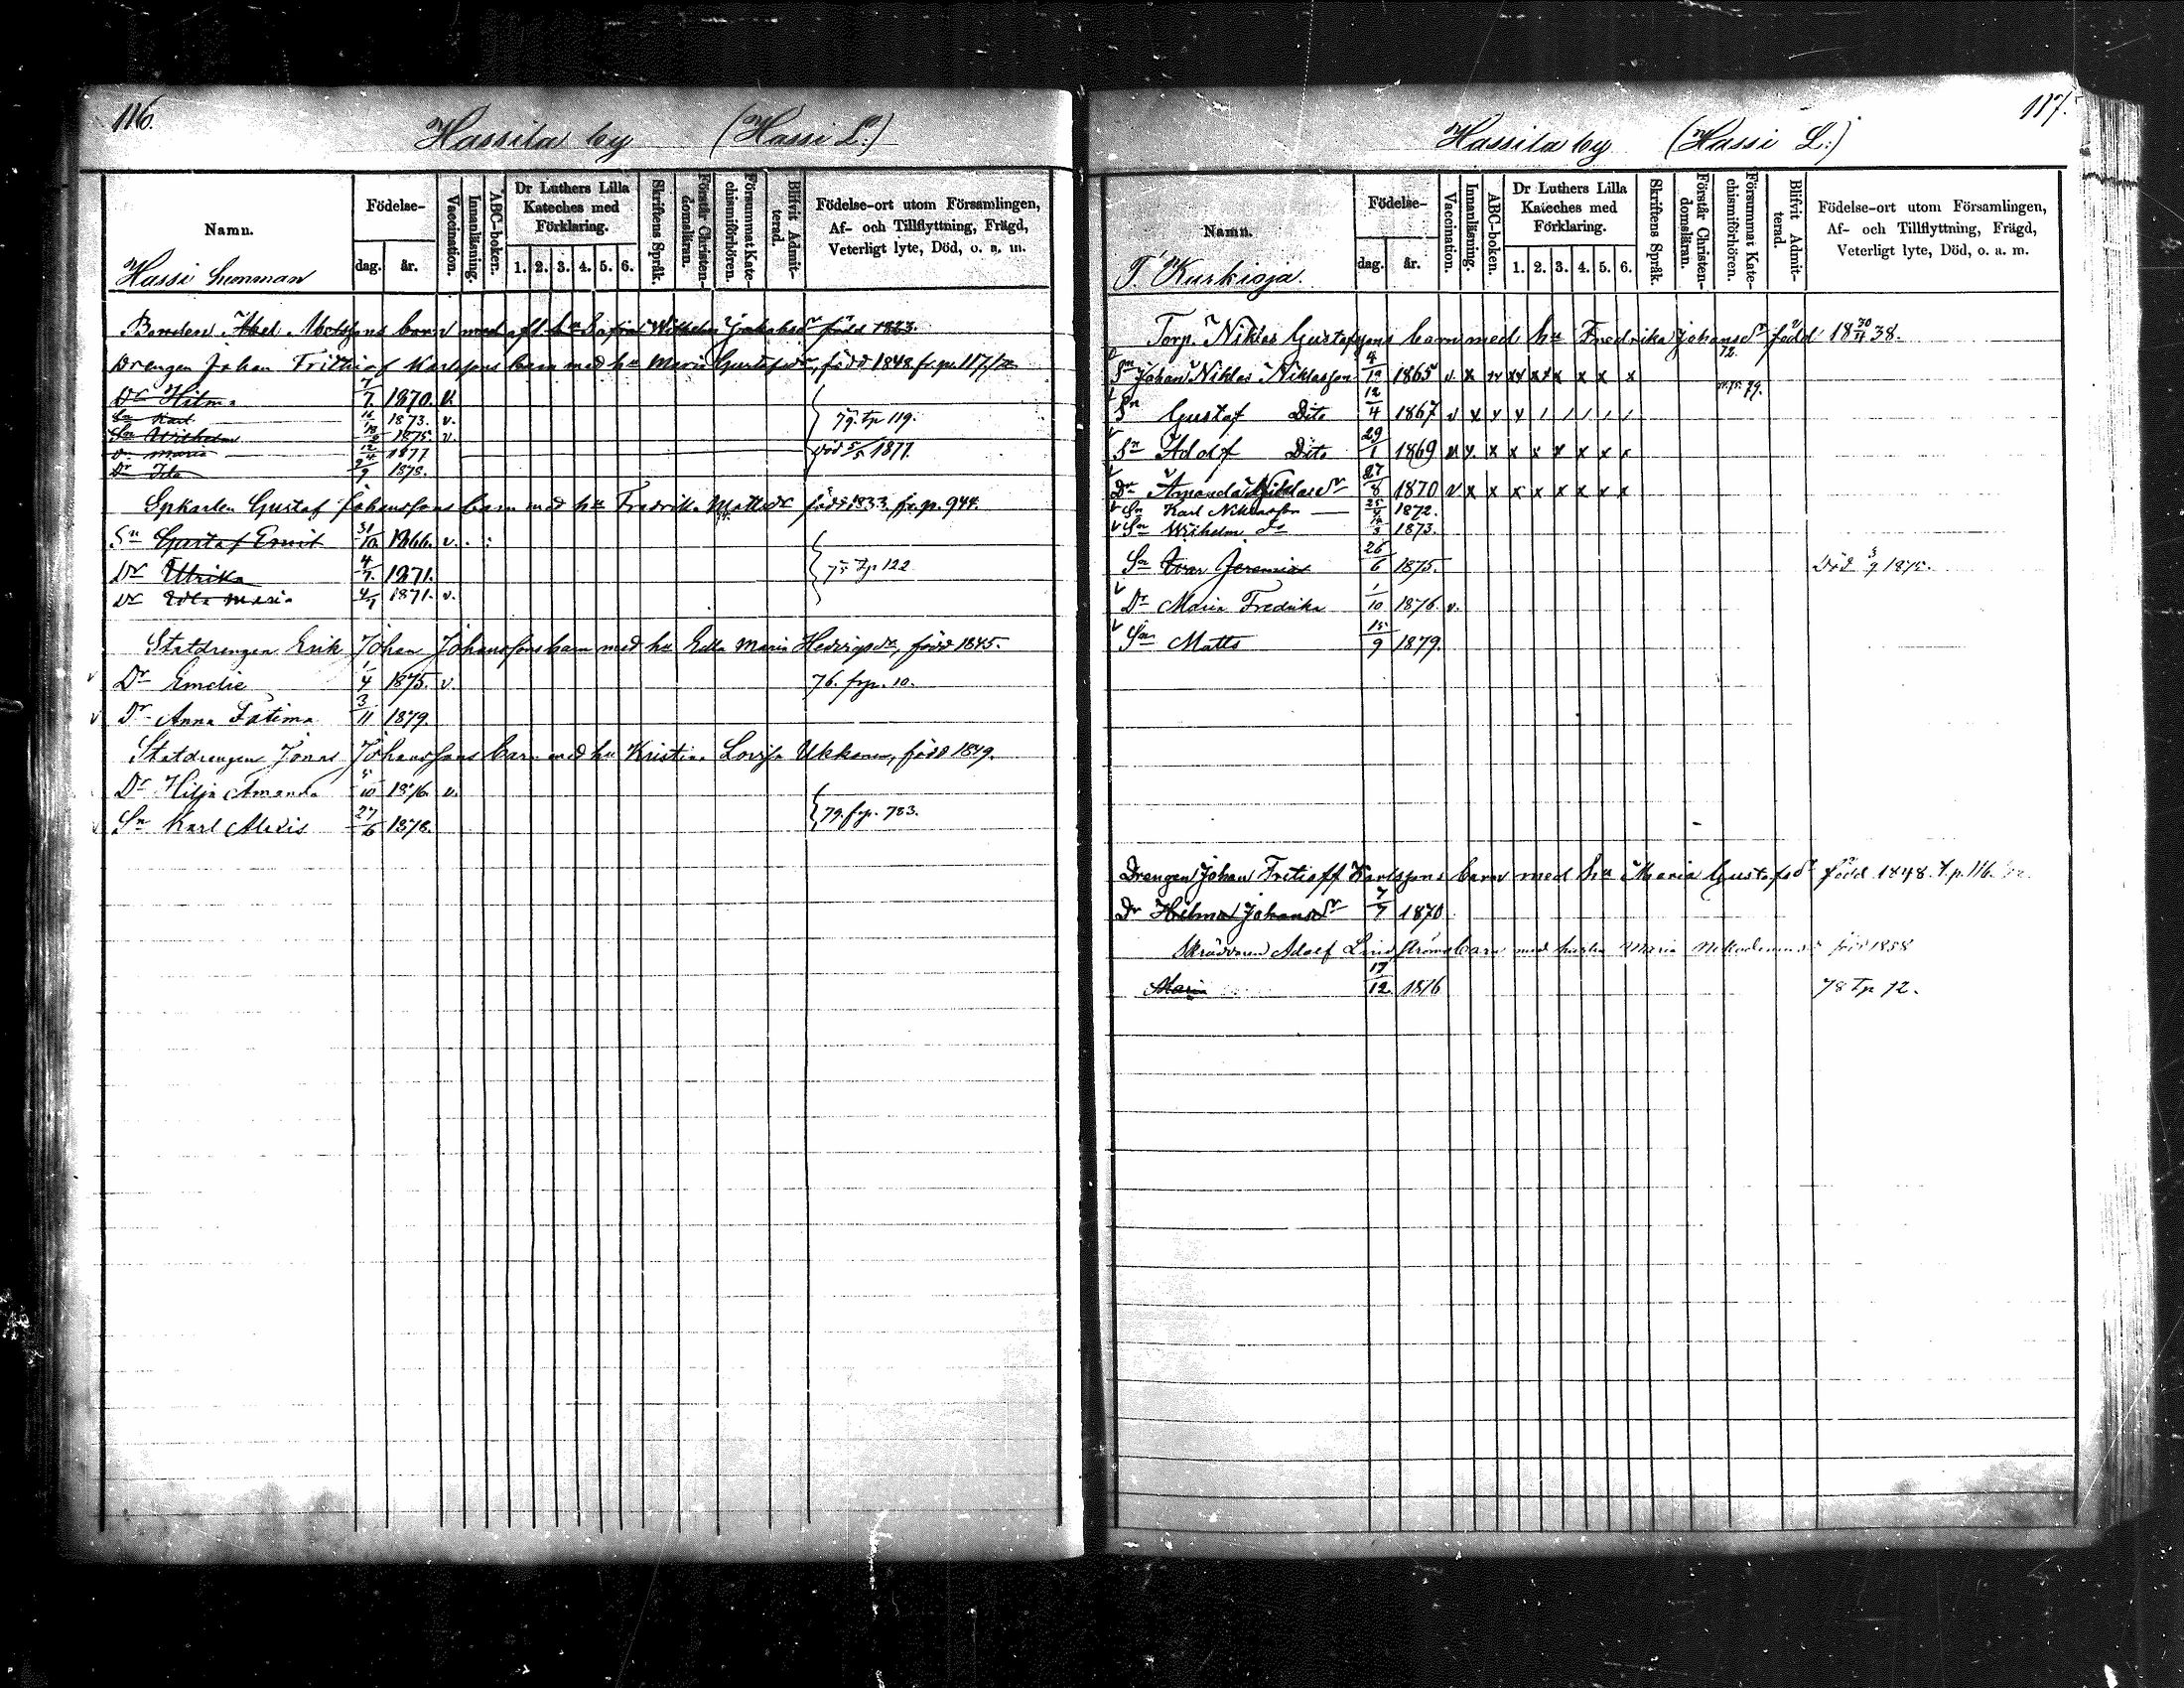 116.
Hassila by (Hassi L.)
Namn.
Födelse-
dag.
år.
Vaccination.
Innanläsning.
ABC-boken.
Dr Luthers Lilla Kateches med Förklaring.
1. 2. 3. 4. 5. 6.
Skriftens Språk.
Förstår Christendomsläran.
Försummat Katechismiförhören.
Blifvit Admitterad.
Födelse-ort utom Församlingen, Af- och Tillflyttning, Frägd, Veterligt lyte, Död, o. a. m.
Hassi
Bonden barn med hu Wilhelm född 1823.
Drengen Johan Frithiof Karlssons barn med hu Maria Gustafsdr, född 1848. fr. p. 117/72
Dr Hilma 7/7 1870. v.
Sn Karl 1873. v. 79. tp 119.
Sn Wilhelm 1875. v
Dr Maria 12/4 1877 död 5/5 1877.
Dr Ida 2/9 1878.
Spkarlen Gustaf Johanssons barn med hu Fredrika Mattsdr född 1833 fr. p. 944.
Sn Gustaf Emil 31/10 1866. v.
Dr Ulrika 4/7 1871. 75 tp 122
Dr Edla Maria 4/7 1871. v.
Statdrengen Erik Johan Johanssons barn med hu Edla Maria Hedvigsdr, född 1845.
Dr Emelie 1/4 1875. v. 76. frp. 10.
Dr Anna Fatima 3/11 1879.
Statdrengen Jonas Johanssons barn med hu Kristina Lovisa Ukkonen, född 1849.
Dr Hilja Amanda 5/10 1876. v.
Sn Karl Alexis 27/6 1878. 79. frp. 783.
117.
Hassila by (Hassi L.)
Namn.
Födelse-
dag.
år.
Vaccination.
Innanläsning.
ABC-boken.
Dr Luthers Lilla Kateches med Förklaring.
1. 2. 3. 4. 5. 6.
Skriftens Språk.
Förstår Christendomsläran.
Försummat Katechismiförhören.
Blifvit Admitterad.
Födelse-ort utom Församlingen, Af- och Tillflyttning, Frägd, Veterligt lyte, Död, o. a. m.
T. Kurkioja.
Torp. Niklas Gustafssons barn med hu Fredrika Johansdr född 18 30/11 38.
Sn Johan Niklas Niklasson 4/12 1865 v x x x x x x x
Sn Gustaf Dito 12/4 1867 v x x x / / / / /
Sn Adolf Dito 29/1 1869 v x x x x x x x x
Dr Amanda Niklasdr 27/8 1870 v x x x x x x x x
Sn Karl Niklasson 1872.
Sn Wilhelm Do 1873.
Sn Ivar Jeremias 26/6 1875. Död 3/9 1875.
Dr Maria Fredrika 1/10 1876. v.
Sn Matts 15/9 1879.
Drengen Johan Fritioff Karlssons barn med hu Maria Gustafsdr född 1848. t. p. 116.
Dr Hilma Johansdr 7/7 1870
Skräddaren Adolf Lindströms barn med hustru Maria född 1858
Maria 17/12 1876 78 tp 12.